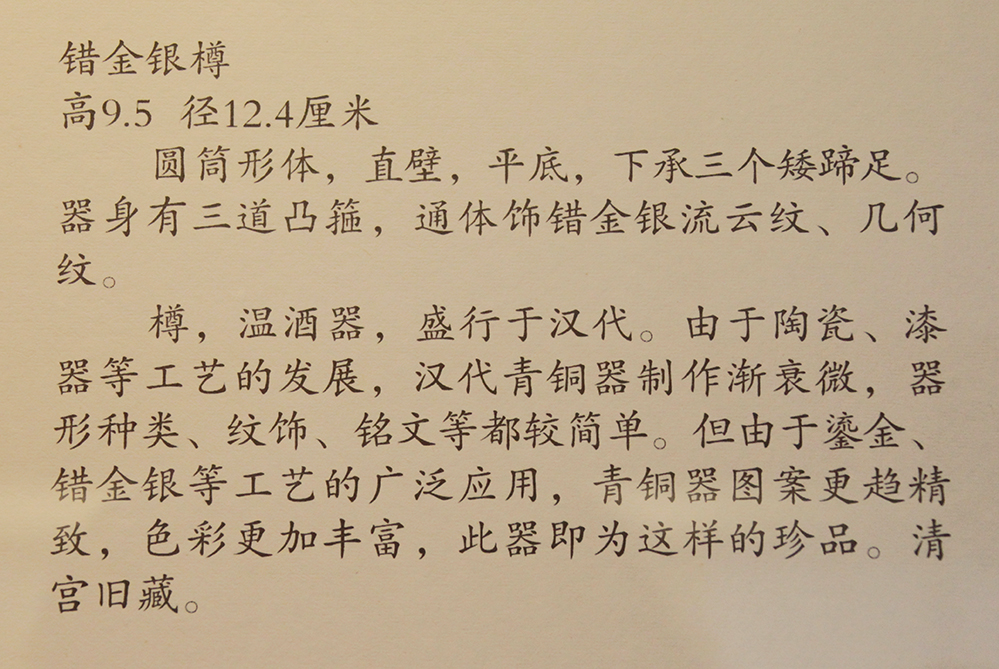 错金银樽
高9.5 径12.4厘米
圆筒形体，直壁，平底，下承三个矮蹄足。
器身有三道凸箍，通体饰错金银流云纹、几何
纹。
樽，温酒器，盛行于汉代。由于陶瓷、漆
器等工艺的发展，汉代青铜器制作渐衰微，器
形种类、纹饰、铭文等都较简单。但由于鎏金、
错金银等工艺的广泛应用，青铜器图案更趋精
致，色彩更加丰富，此器即为这样的珍品。清
宫旧藏。